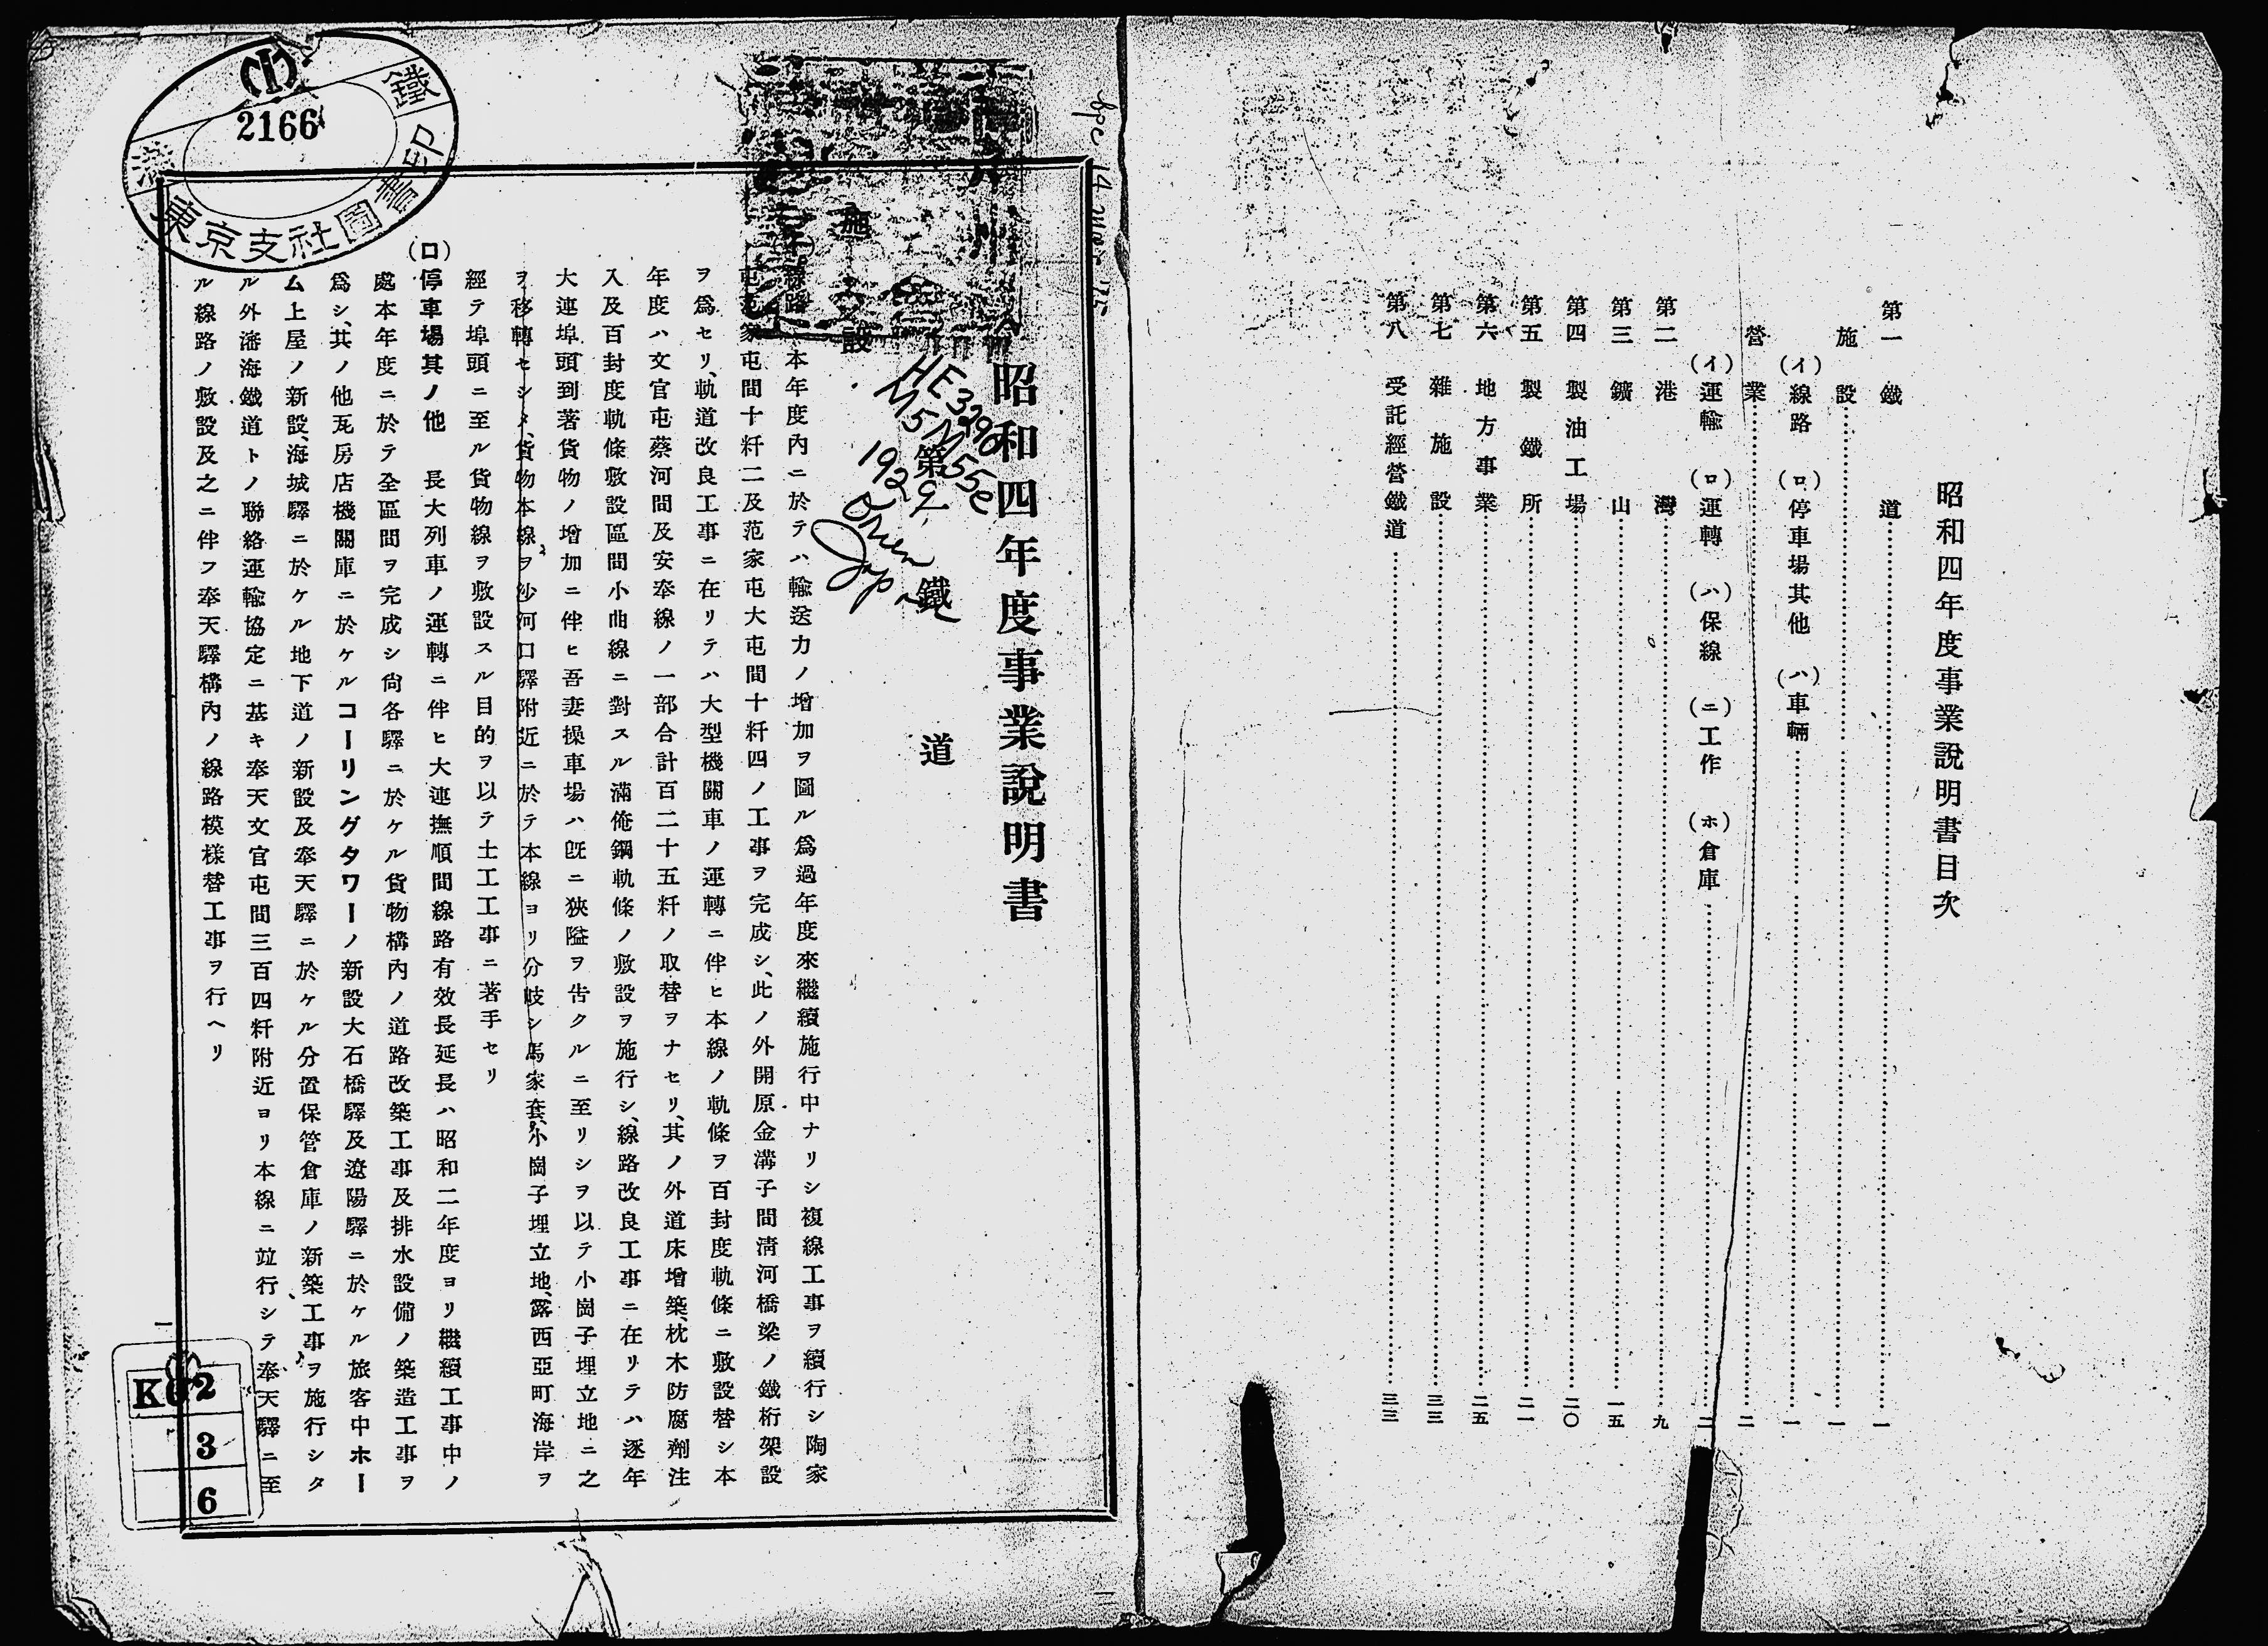 昭和四年度事業說明書目次
第一 鐵道 一
施設 一
(イ)線路 (ロ)停車場其他 (ハ)車輛 一
營業 二
(イ)運輸 (ロ)運轉 (ハ)保線 (ニ)工作 (ホ)倉庫 二
第二 港灣 九
第三 鑛山 一五
第四 製油工場 二〇
第五 製鐵所 二一
第六 地方事業 二五
第七 雜施設 三三
第八 受託經營鐵道 三三
昭和四年度事業說明書
第 鐵道
施設
線路 本年度內ニ於テハ輸送力ノ增加ヲ圖ル爲過年度來繼續施行中ナリシ複線工事ヲ續行シ陶家
屯范家屯間十粁二及范家屯大屯間十粁四ノ工事ヲ完成シ、此ノ外開原金溝子間淸河橋梁ノ鐵桁架設
ヲ爲セリ、軌道改良工事ニ在リテハ大型機關車ノ運轉ニ伴ヒ本線ノ軌條ヲ百封度軌條ニ敷設替シ本
年度ハ文官屯蔡河間及安奉線ノ一部合計百二十五粁ノ取替ヲナセリ、其ノ外道床增築、枕木防腐劑注
入及百封度軌條敷設區間小曲線ニ對スル滿俺鋼軌條ノ敷設ヲ施行シ、線路改良工事ニ在リテハ逐年
大連埠頭到著貨物ノ增加ニ伴ヒ吾妻操車場ハ旣ニ狹隘ヲ告クルニ至リシヲ以テ小崗子埋立地ニ之
ヲ移轉セシメ、貨物本線ヲ沙河口驛附近ニ於テ本線ヨリ分岐シ馬家套、小崗子埋立地、露西亞町海岸ヲ
經テ埠頭ニ至ル貨物線ヲ敷設スル目的ヲ以テ土工工事ニ著手セリ
(ロ)停車場其ノ他 長大列車ノ運轉ニ伴ヒ大連撫順間線路有效長延長ハ昭和二年度ヨリ繼續工事中ノ
處本年度ニ於テ全區間ヲ完成シ尙各驛ニ於ケル貨物構內ノ道路改築工事及排水設備ノ築造工事ヲ
爲シ、其ノ他瓦房店機關庫ニ於ケルコーリングタワーノ新設大石橋驛及遼陽驛ニ於ケル旅客中ホー
ム上屋ノ新設、海城驛ニ於ケル地下道ノ新設及奉天驛ニ於ケル分置保管倉庫ノ新築工事ヲ施行シタ
ル外瀋海鐵道トノ聯絡運輸協定ニ基キ奉天文官屯間三百四粁附近ヨリ本線ニ竝行シテ奉天驛ニ至
ル線路ノ敷設及之ニ伴フ奉天驛構內ノ線路模樣替工事ヲ行ヘリ
一
2166
鐵
東京支社圖書印
HE3290
M5M55e
1929
Orien
Japn
3
6